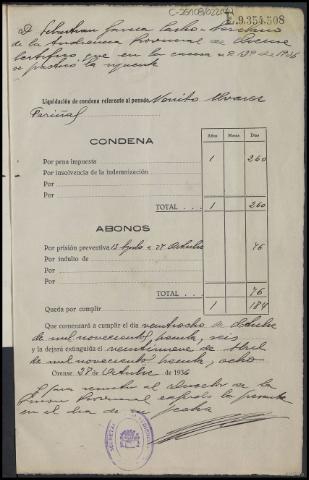 C-25108/022
E.9.354.508
D. Sebastian Garcia
de la Audiencia Provincial de Orense
Certifico, que en la causa nº de 1936
se practicó la siguiente
Liquidación de condena referente al penado Alvarez
Fariñas
CONDENA
Años Meses Días
Por pena impuesta 1 260
Por insolvencia de la indemnización
Por
Por
TOTAL 1 260
ABONOS
Por prisión preventiva 13 Agosto a 27 Octubre 76
Por indulto de
Por
Por
TOTAL 76
Queda por cumplir 1 184
Que comenzará a cumplir el día veintiocho de Octubre
de mil novecientos treinta y seis
y la dejará extinguida el veintinueve de Abril
de mil novecientos treinta y ocho
Orense, 28 de Octubre de 1936
Y para remitir al Director de la
Prision Provincial expido la presente
en el dia de su fecha